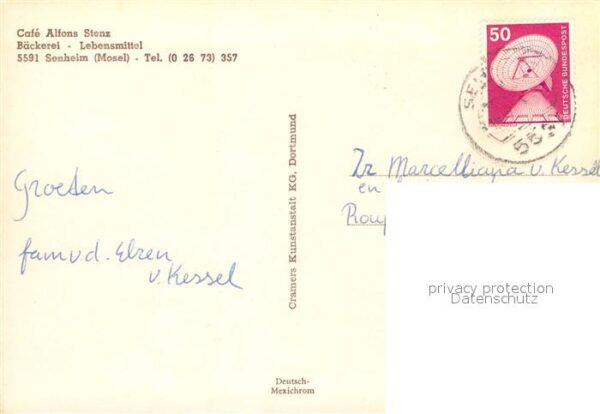 Café Alfons Stenz
Bäckerei - Lebensmittel
5591 Senheim (Mosel) - Tel. (0 26 73) 357
50
DEUTSCHE BUNDESPOST
Groeten
fam v.d. Elzen
v. Kessel
Cramers Kunstanstalt KG, Dortmund
Zr Marcelliana v. Kessel
en
privacy protection
Datenschutz
Deutsch-
Mexichrom